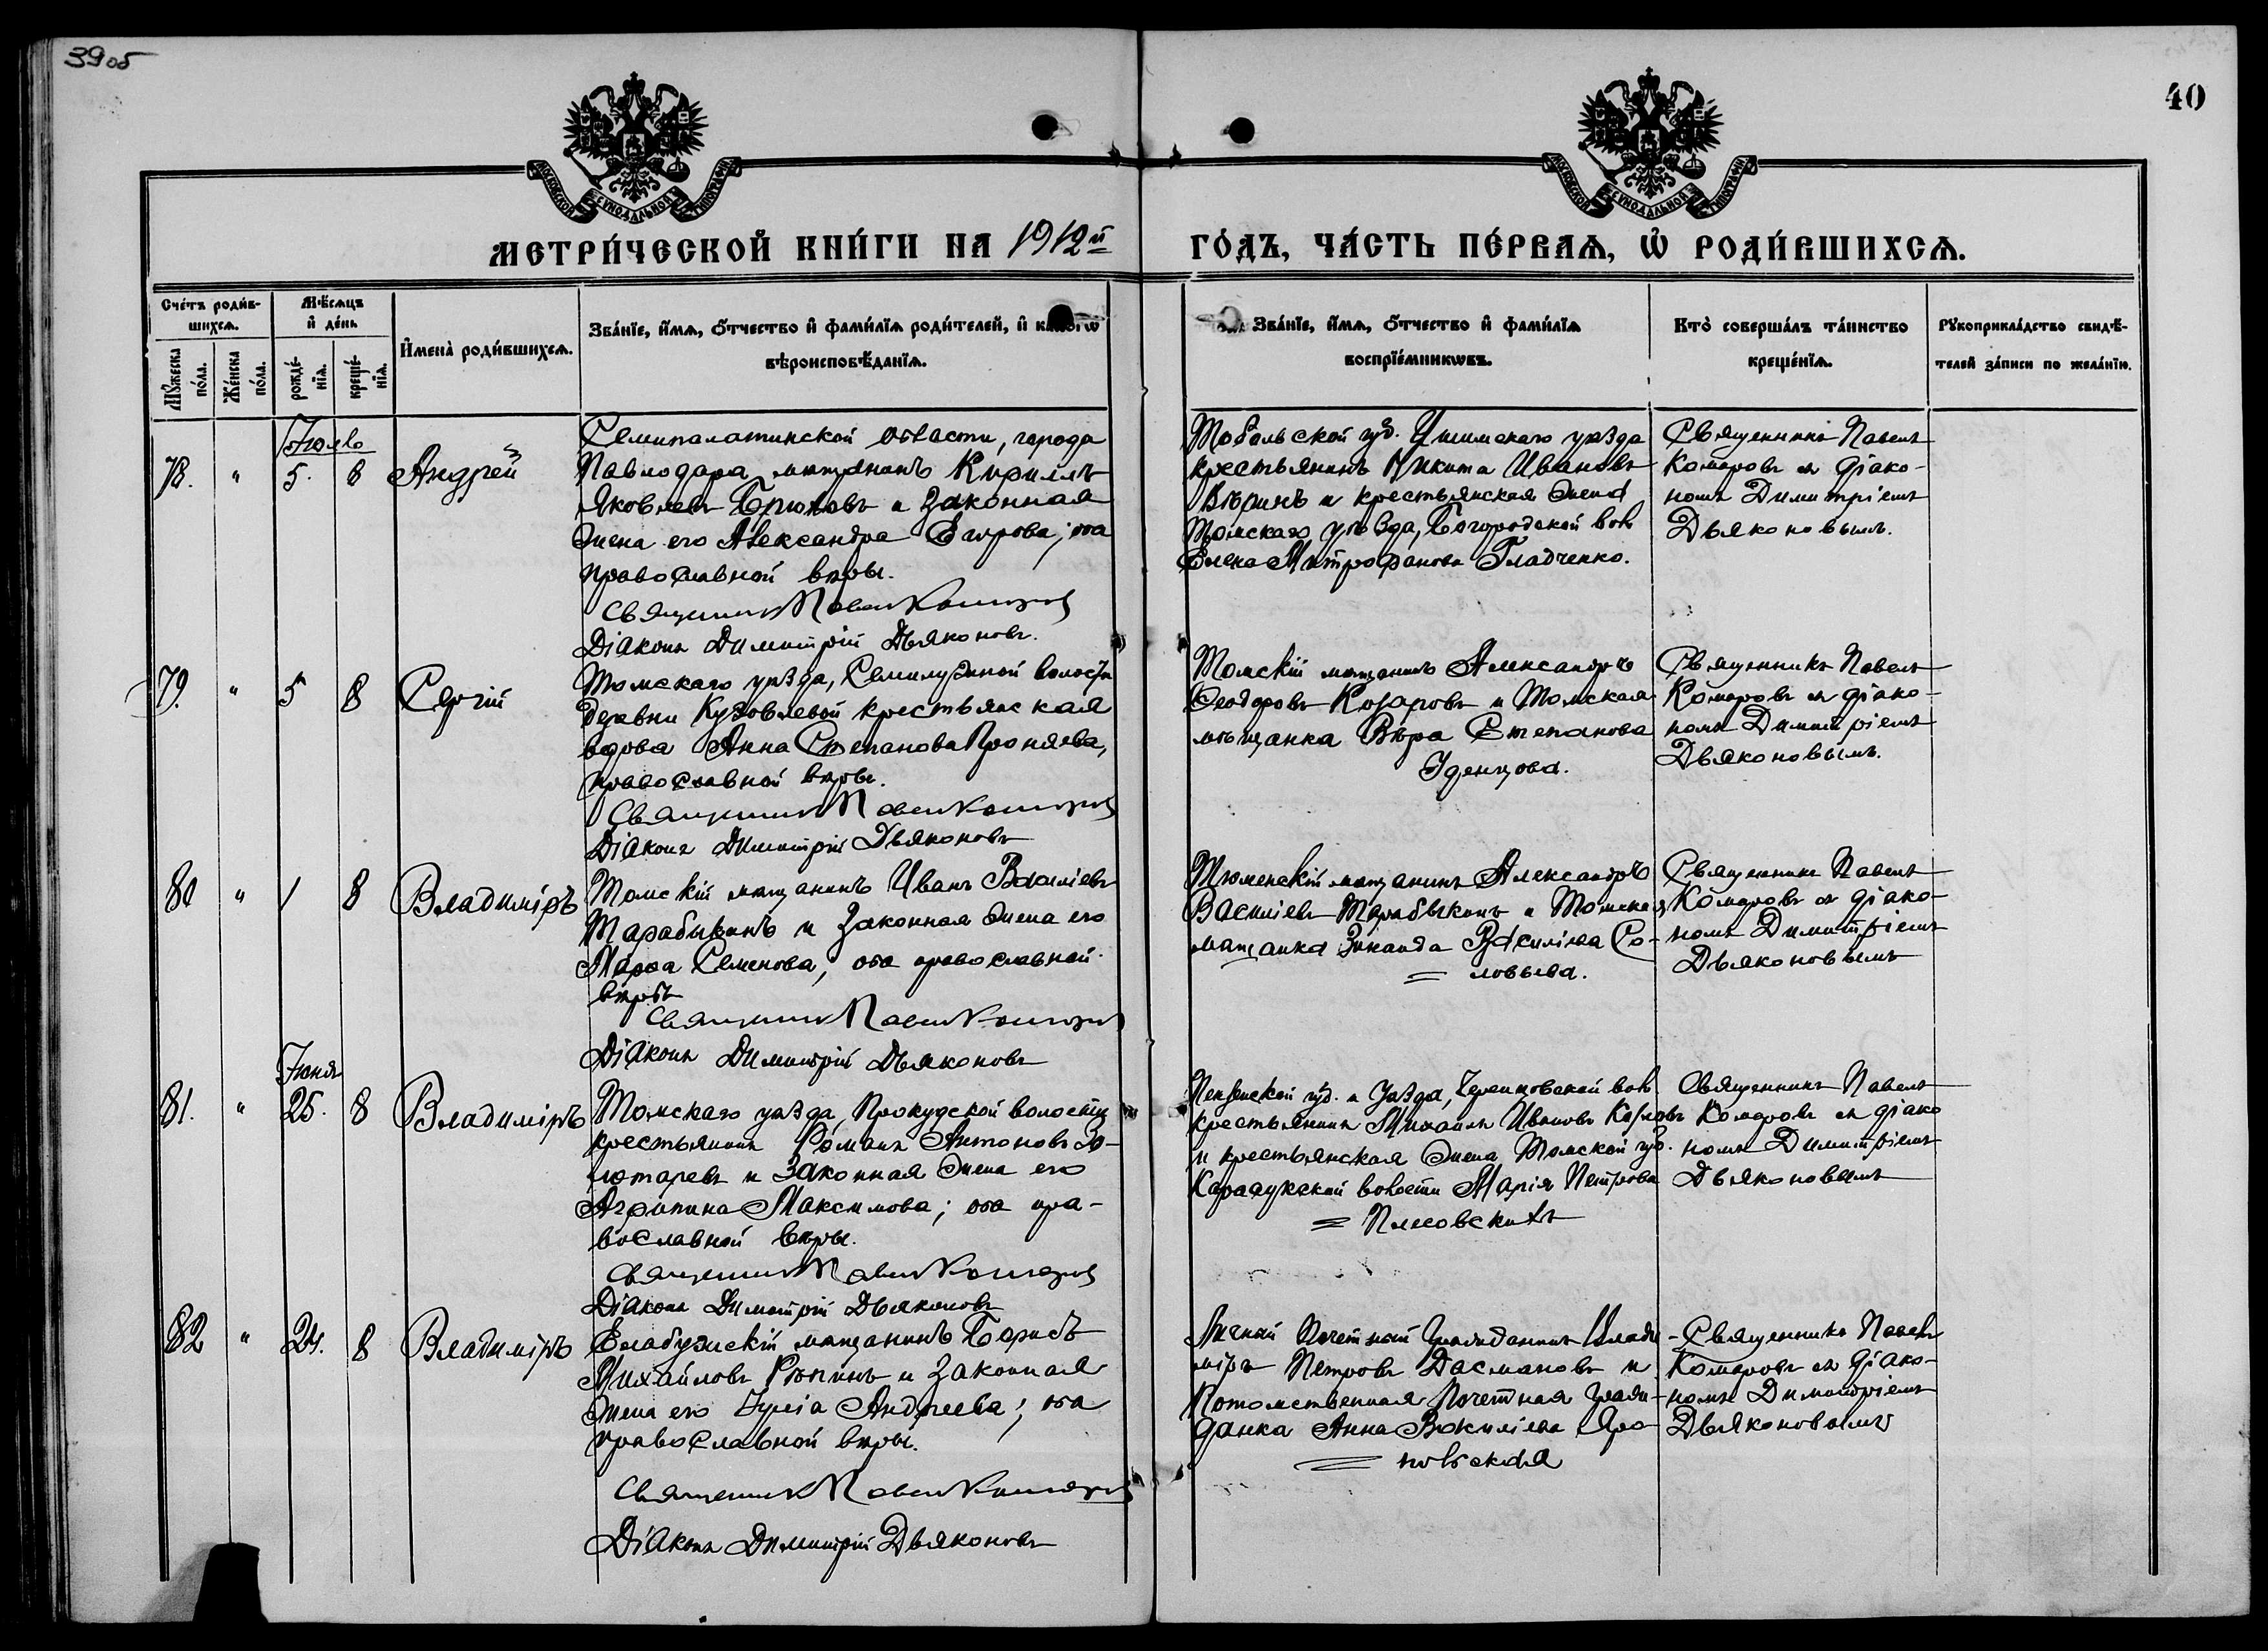 39об
40
МОСКОВСКОЙ СУНОДАЛЬНОЙ ТИПОГРАФІИ
МОСКОВСКОЙ СУНОДАЛЬНОЙ ТИПОГРАФІИ
МЕТРИ́ЧЕСКОЙ КНИ́ГИ НА 1912й
ГО́ДЪ, ЧА́СТЬ ПЕ́РВАѦ, Ѡ҆ РОДИ́ВШИХСѦ.
Сче́тъ роди́в-
шихсѧ.
Мꙋ́жеска по́ла.
Же́нска по́ла.
Мѣ́сѧцъ
и҆ де́нь
рожде́-
нїѧ.
креще́-
нїѧ.
И҆мена̀ роди́вшихсѧ.
Зва́нїе, и҆́мѧ, ѻ҆́тчество и҆ фами́лїѧ роди́телей, и҆ како́гѡ
вѣроисповѣ́данїѧ.
Зва́нїе, и҆́мѧ, ѻ҆́тчество и҆ фами́лїѧ
воспрїе́мникѡвъ.
Кто̀ соверша́лъ та́инство
креще́нїѧ.
Рꙋкоприкла́дство свидѣ́-
телей за́писи по жела́нїю.
Іюль
78. " 5. 8 Андрей
Семипалатинской области, города
Павлодара мѣщанинъ Кириллъ
Яковлевъ Брюховъ и законная
жена его Александра Егорова; оба
православной вѣры.
Священникъ Павелъ Комаровъ
Діаконъ Димитрій Дьяконовъ.
Тобольской губ. Ишимскаго уѣзда
крестьянинъ Никита Ивановъ
Вѣринъ и крестьянская жена
Томскаго уѣзда, Богородской вол
Елена Митрофанова Гладченко.
Священникъ Павелъ
Комаровъ съ діако-
номъ Димитріемъ
Дьяконовымъ.
79. " 5 8 Сергій
Томскаго уѣзда, Семилужной волости
деревни Кузовлевой крестьянская
вдова Анна Степанова Проняева,
православной вѣры.
Священникъ Павелъ Комаровъ
Діаконъ Димитрій Дьяконовъ
Томскій мѣщанинъ Александръ
Ѳеодоровъ Козаровъ и Томская
мѣщанка Вѣра Степанова
Уденцова.
Священникъ Павелъ
Комаровъ съ діако-
номъ Димитріемъ
Дьяконовымъ.
80 " 1 8 Владиміръ
Томскій мѣщанинъ Иванъ Василіевъ
Тарабыкинъ и законная жена его
Марѳа Семенова, оба православной
вѣры
Священникъ Павелъ Комаровъ
Діаконъ Димитрій Дьяконовъ
Тюменскій мѣщанинъ Александръ
Василіевъ Тарабыкинъ и Томская
мѣщанка Зинаида Василіева Со-
= ловьева.
Священникъ Павелъ
Комаровъ съ діако-
номъ Димитріемъ
Дьяконовымъ
Іюня
81. " 25. 8 Владиміръ
Томскаго уѣзда, Прокудской волости
крестьянинъ Романъ Антоновъ
и законная жена его
Агрипина Максимова; оба пра-
вославной вѣры.
Священникъ Павелъ Комаровъ
Діаконъ Димитрій Дьяконовъ
Пензенской губ. и уѣзда, вол
крестьянинъ Михаилъ Ивановъ Козловъ
и крестьянская жена Томской губ.
Карасукской волости Марія Петрова
= Плесовскихъ
Священникъ Павелъ
Комаровъ съ діако
номъ Димитріемъ
Дьяконовымъ
82 " 24. 8 Владиміръ
Елабужскій мѣщанинъ Борисъ
Михайловъ Рѣпинъ и законная
жена его Андреева; оба
православной вѣры.
Священникъ Павелъ Комаровъ
Діаконъ Димитрій Дьяконовъ
Личный Почетный Гражданинъ Влади-
міръ Петровъ Дасмановъ и
Потомственная Почетная Граж-
данка Анна Василіева Яро-
=
Священникъ Павелъ
Комаровъ съ діако-
номъ Димитріемъ
Дьяконовымъ